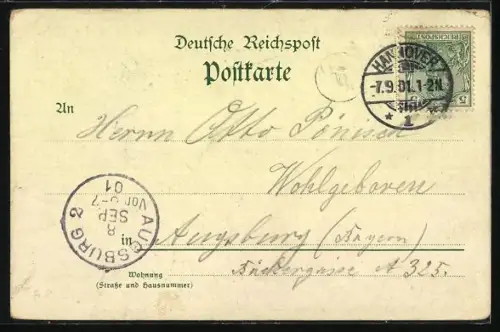 Deutsche Reichspost
Postkarte
REICHSPOST
5
HANNOVER
-7.9.01.1-2N.
* 1 *
An
Herrn Otto
Wohlgeboren
AUGSBURG 2
8
SEP
Vor 6-7
01
in Augsburg (Bayern)
Bäckergasse A 325.
Wohnung
(Straße und Hausnummer)